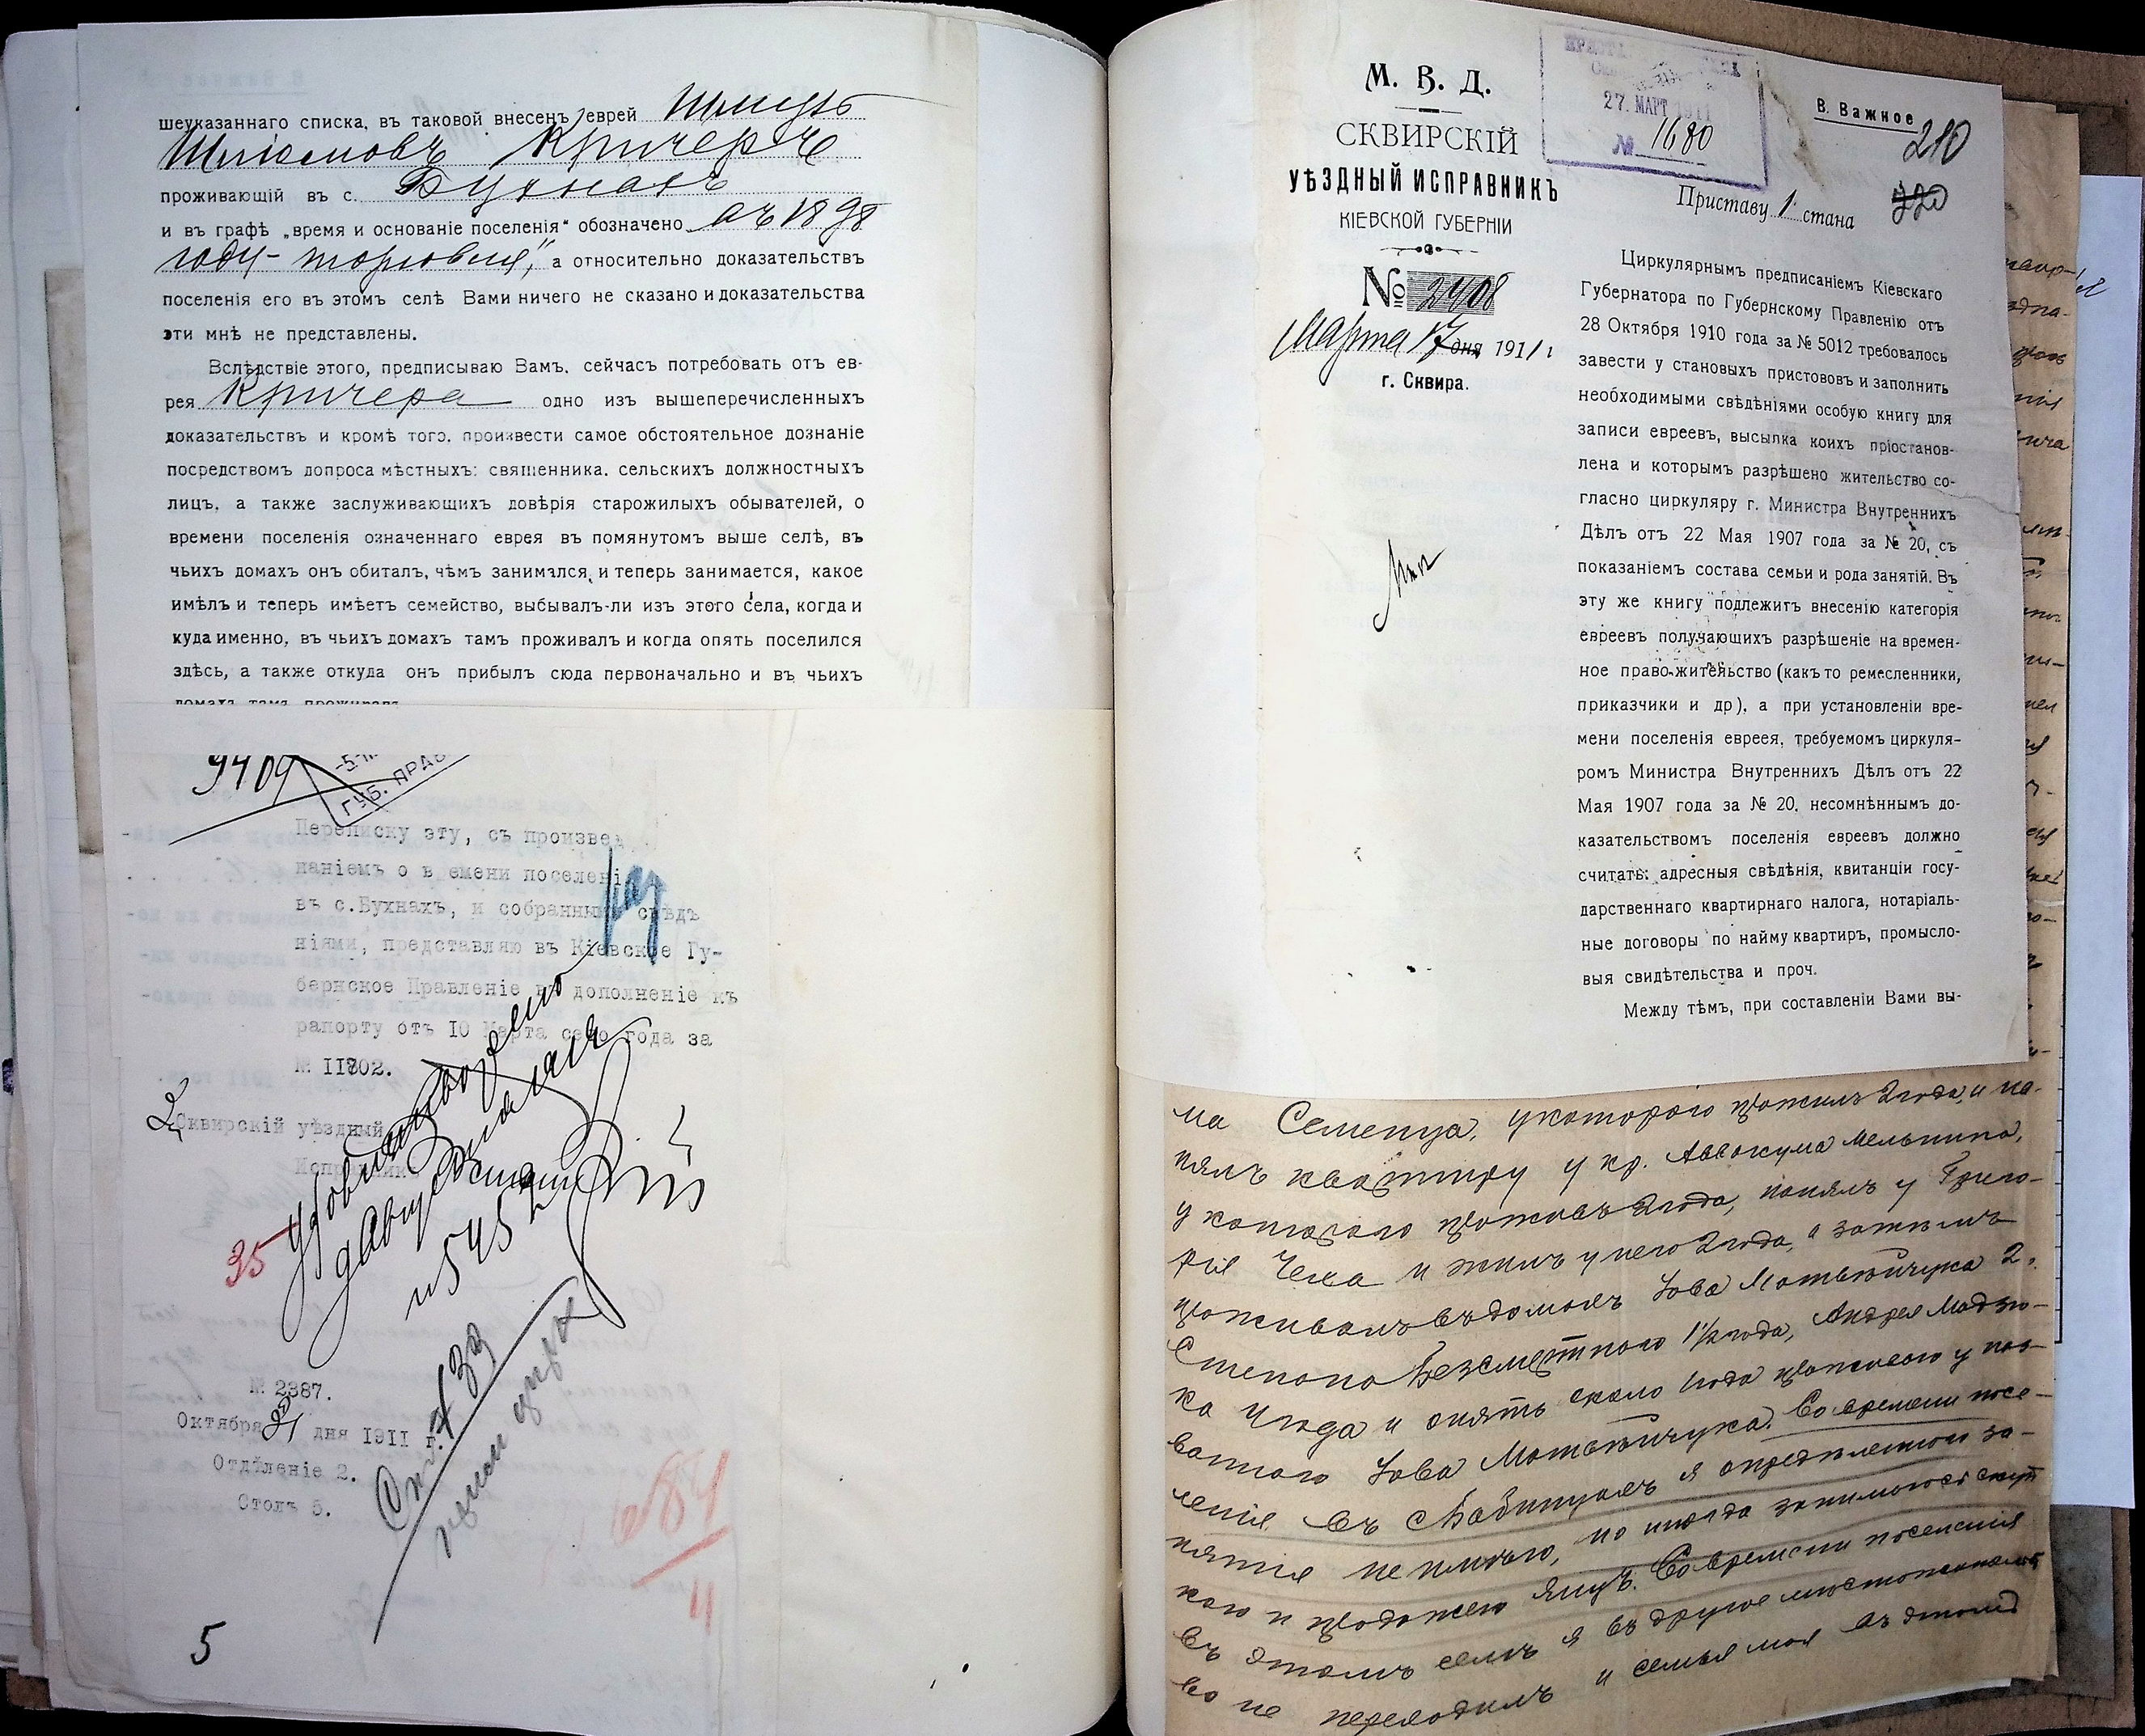 шеуказаннаго списка, въ таковой внесенъ еврей Шмуль
Шліомовъ Кричеръ
проживающій въ с. Бухнахъ
и въ графѣ „время и основаніе поселенія“ обозначено въ 1898
году - торговля, а относительно доказательствъ
поселенія его въ этомъ селѣ Вами ничего не сказано и доказательства
эти мнѣ не представлены.
Вслѣдствіе этого, предписываю Вамъ. сейчасъ потребовать отъ ев-
рея Кричера одно изъ вышеперечисленныхъ
доказательствъ и кромѣ того. произвести самое обстоятельное дознаніе
посредствомъ допроса мѣстныхъ: священника. сельскихъ должностныхъ
лицъ, а также заслуживающихъ довѣрія старожилыхъ обывателей, о
времени поселенія означеннаго еврея въ помянутомъ выше селѣ, въ
чьихъ домахъ онъ обиталъ, чѣмъ занимался и теперь занимается, какое
имѣлъ и теперь имѣетъ семейство, выбывалъ-ли изъ этого села, когда и
куда именно, въ чьихъ домахъ тамъ проживалъ и когда опять поселился
здѣсь, а также откуда онъ прибылъ сюда первоначально и въ чьихъ
домахъ тамъ проживалъ
9409
ГУБ. ПРАВ
Переписку эту, съ произвед
наніемъ о в емени поселені
въ с.Бухнахъ, и собранным свѣдѣ
ніями, представляю въ Кіевское Гу-
бернское Правленіе въ дополненіе къ
рапорту отъ 10 Марта сего года за
№ II802.
Сквирскій уѣздный
Исправникъ
35
№ 2387.
Октября 31 дня 1911 г.
Отдѣленіе 2.
Столъ 5.
84
4
5
М. В. Д.
СКВИРСКІЙ
УѢЗДНЫЙ ИСПРАВНИКЪ
КІЕВСКОЙ ГУБЕРНІИ
№ 2408
Марта 17 дня 1911 г
г. Сквира.
27. МАРТ 1911
№ 1680
В. Важное
210
220
Приставу 1 стана
Циркулярнымъ предписаніемъ Кіевскаго
Губернатора по Губернскому Правленію отъ
28 Октября 1910 года за № 5012 требовалось
завести у становыхъ пристововъ и заполнить
необходимыми свѣдѣніями особую книгу для
записи евреевъ, высылка коихъ пріостанов-
лена и которымъ разрѣшено жительство со-
гласно циркуляру г. Министра Внутреннихъ
Дѣлъ отъ 22 Мая 1907 года за № 20, съ
показаніемъ состава семьи и рода занятій. Въ
эту же книгу подлежитъ внесенію категорія
евреевъ получающихъ разрѣшеніе на времен-
ное право-жительство (какъ то ремесленники,
приказчики и др), а при установленіи вре-
мени поселенія евреея, требуемомъ циркуля-
ромъ Министра Внутреннихъ Дѣлъ отъ 22
Мая 1907 года за № 20, несомнѣннымъ до-
казательствомъ поселенія евреевъ должно
считать: адресныя свѣдѣнія, квитанціи госу-
дарственнаго квартирнаго налога, нотаріаль-
ные договоры по найму квартиръ, промысло-
выя свидѣтельства и проч.
Между тѣмъ, при составленіи Вами вы-
ма Семенца, укоторого прожилъ 2 года, и на-
нялъ квартиру у кр. Аввокума Мельника,
у котораго проживъ 2 года, нанялъ у Григо-
рія Чеха и жилъ у него 2 года, а затѣмъ
проживалъ въ домахъ Іова Мотвѣйчука 2 г.
Степана Безсмертнаго 1½ года,
ка 1 года и опять около 1 года проживаю у наз-
ваннаго Іова Мотвѣйчука. Со времени посе-
ленія въ я опредѣленнаго за-
нятія не имѣю, но иногда занимаюсь скуп
кою и продажею яицъ. Со времени поселенія
въ этомъ селѣ я въ другое мѣстожительст
во не переходилъ и семья моя въ этомъ